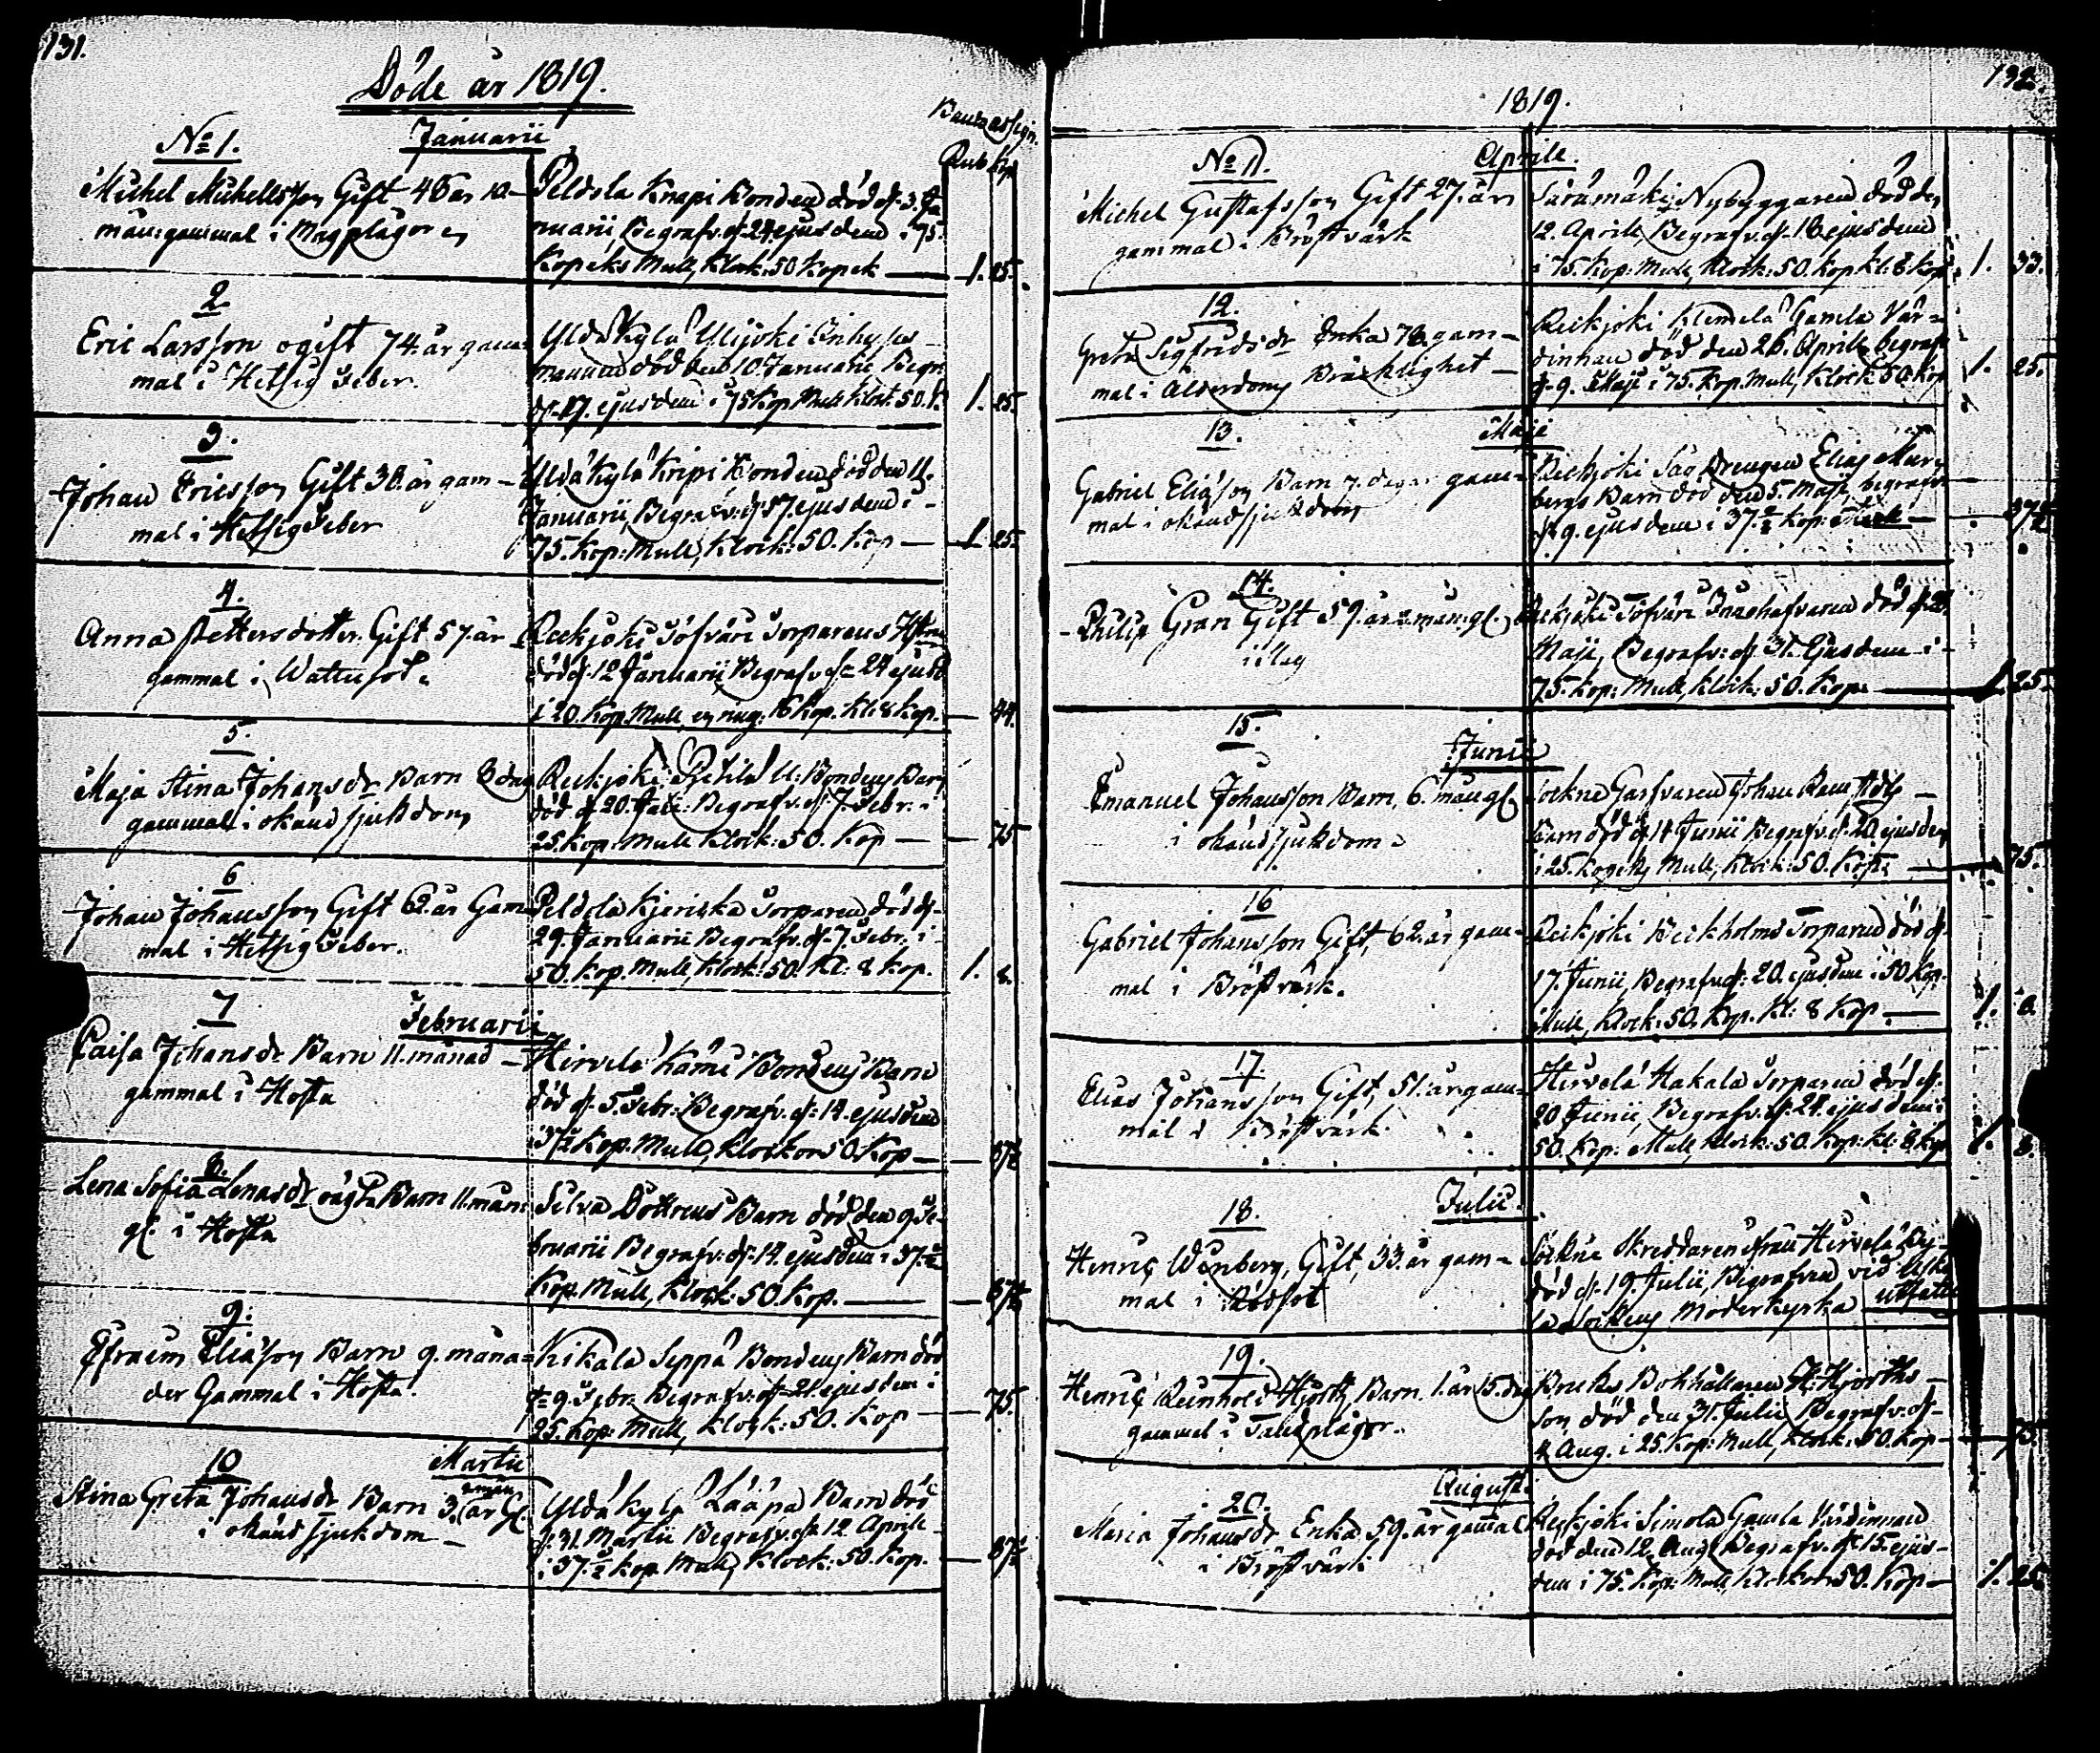 131.
Döde år 1819.
Banco assign.
Rub Kop
Januarii
No 1.
Michel Michellsson Gift 46 år 10
mån: gammal i Magplågor
Peldola Knapi Bonden död d. 3. Ja
nuarii, Begrafv. d. 24 ejusdem i 75.
Kopeks Mull, Klock: 50 Kopek — 1. 25.
2
Eric Larsson ogift 74. år gam=
mal i Hetsig Feber.
Yldäkylä Ylijoki Inhyses
mannen död den 10. Januarii Begr
d. 17. ejusdem i 75 Kop Mull Klock. 50. k. 1. 25.
3.
Johan Ericsson Gift 38. år gam-
mal i Hetsig Feber
Yldäkylä Kripi Bonden död den 11.
Januarii, Begrafv: d. 17. ejusdem i
75. Kop: Mull, Klock: 50. Kop — 1. 25.
4.
Anna Pettersdotter. Gift 57. år
gammal i Wattusot.
Reekjoki Töfväri Torparens Hstru
död d. 12 Januarii Begrafv d. 24 ejusd
i 20. Kop Mull, en ring: 16 Kop. Kl: 8 Kop. — 44.
5.
Maja Stina Johansdr Barn 8 dag
gammal i okänd sjukdom
Reekjoki Bondens Barn
död d. 20. Jan: Begrafv. d. 7. Febr. i
25. Kop: Mull Klock: 50. Kop — 75
6
Johan Johansson Gift 62. år Gam=
mal i Hetsig Feber.
Peldola Kjeriska Torparen död d.
29. Januarii Begrafv. d. 7. Febr. i
50. Kop. Mull, Klock: 50. Kl: 8 Kop. 1. 8.
7
Februarii
Caisa Johansdr Barn 11. månad
gammal i Hosta
Hirvelä Kämi Bondens Barn
död d. 5. Febr: Begrafv. d. 14. ejusdem
i 37½ Kop. Mull, Klockor 50. Kop — 87½
8.
Lena Sofia Lenasdr oägta Barn 11. mån:
gl. i Hosta
Silva Dottrens Barn död den 9 Fe-
bruarii Begrafv: d. 14. ejusdem i 37.½
Kop. Mull, Klock: 50 Kop. — 87½
9:
Efraim Eliasson Barn 9. måna=
der Gammal i Hosta.
Kikala Seppä Bondens Barn död
d. 9. Febr. Begrafv. d. 21 ejusdem i
25. Kop: Mull, Klock: 50. Kop — 75.
10
Martii
Stina Greta Johansdr Barn 3. år gl.
i okänd sjukdom
Yldäkylä Lääpä Barn död
d. 31. Martii Begrafv. d. 12 Aprile
i 37.½ Kop Mull, Klock: 50. Kop. — 87½
132.
1819.
No 11.
Aprile.
Michel Gustafsson Gift 27. år
gammal i Bröstvärk
Särämäki Nybyggaren död den
12. Aprile, Begrafv. d. 18 ejusdem
i 75. Kop: Mull, Klock: 50. Kop kl: 8 Kop. 1. 33.
12.
Greta Sigfridsdr Enka 78. gam-
mal i Ålderdoms Bräcklighet
Reekjoki Klemelä Gamla Vär=
dinnan död den 26. Aprile begrafv
d. 9. Maji i 75. Kop. Mull, Klock 50. Kop 1. 25.
13.
Maji
Gabriel Eliasson Barn 7. dagar gam=
mal i okänd sjukdom
Reekjoki Såg Drengen Elias Mur
bergs Barn död den 5. Maji, begrafv
d. 9. ejusdem i 37.½ Kop: Mull — 37½
14.
Philip Gran Gift 59. år 2. mån: gl.
i Håll
Reekjoki Töfväri Innehafvaren död d. 21
Maji, Begrafv: d. 31. Ejusdem i
75. Kop: Mull, Klock: 50. Kop. — 1. 25.
15.
Junii
Emanuel Johansson Barn, 6. mån gl.
i okänd sjukdom.
Sockne Garfvaren Johan Ramstedts
Barn död d. 14 Junii Begrafv. d. 20 ejusdem
i 25. Kopeks Mull, Klock: 50. Kop: — 75.
16
Gabriel Johansson Gift, 62. år gam=
mal i Bröstvärk.
Reekjoki Beckholms Torparen död d.
17. Junii, Begrafv d: 20. ejusdem i 50 Kop.
Mull, Klock: 50. Kop. Kl: 8 Kop. — 1. 8.
17.
Elias Johansson Gift, 51. år gam=
mal i Bröstvärk.
Hirvelä Hakala Torparen död d.
20 Junii, Begrafv. d: 24. ejusdem i
50. Kop: Mull, Klock: 50. Kop: kl: 8 Kop 1. 8.
18.
Julii.
Henric Wenberg, Gift, 33. år gam=
mal i Rödsot
Sockne Skreddaren ifrån Hirvelä By
död d. 19. Julii, Begrafven vid
Sockens Moderkyrka
19.
Henric Reinhold Hjorth, Barn. 1. år 15. da
gammal i Tandplågor.
Bruks Bokhållaren H: Hjorths
Son död den 31. Julii Begrafv. d.
4 Aug. i 25. Kop: Mull, Klock. 50. Kop — 75.
20.
August.
Maria Johansdr Enka 59. år gammal
i Bröstvärk
Reekjoki Simola Gamla Värdinnan
död den 12. Aug. Begrafv. d. 15. ejus-
dem i 75. Kop: Mull, Klockor 50. Kop — 1. 25.